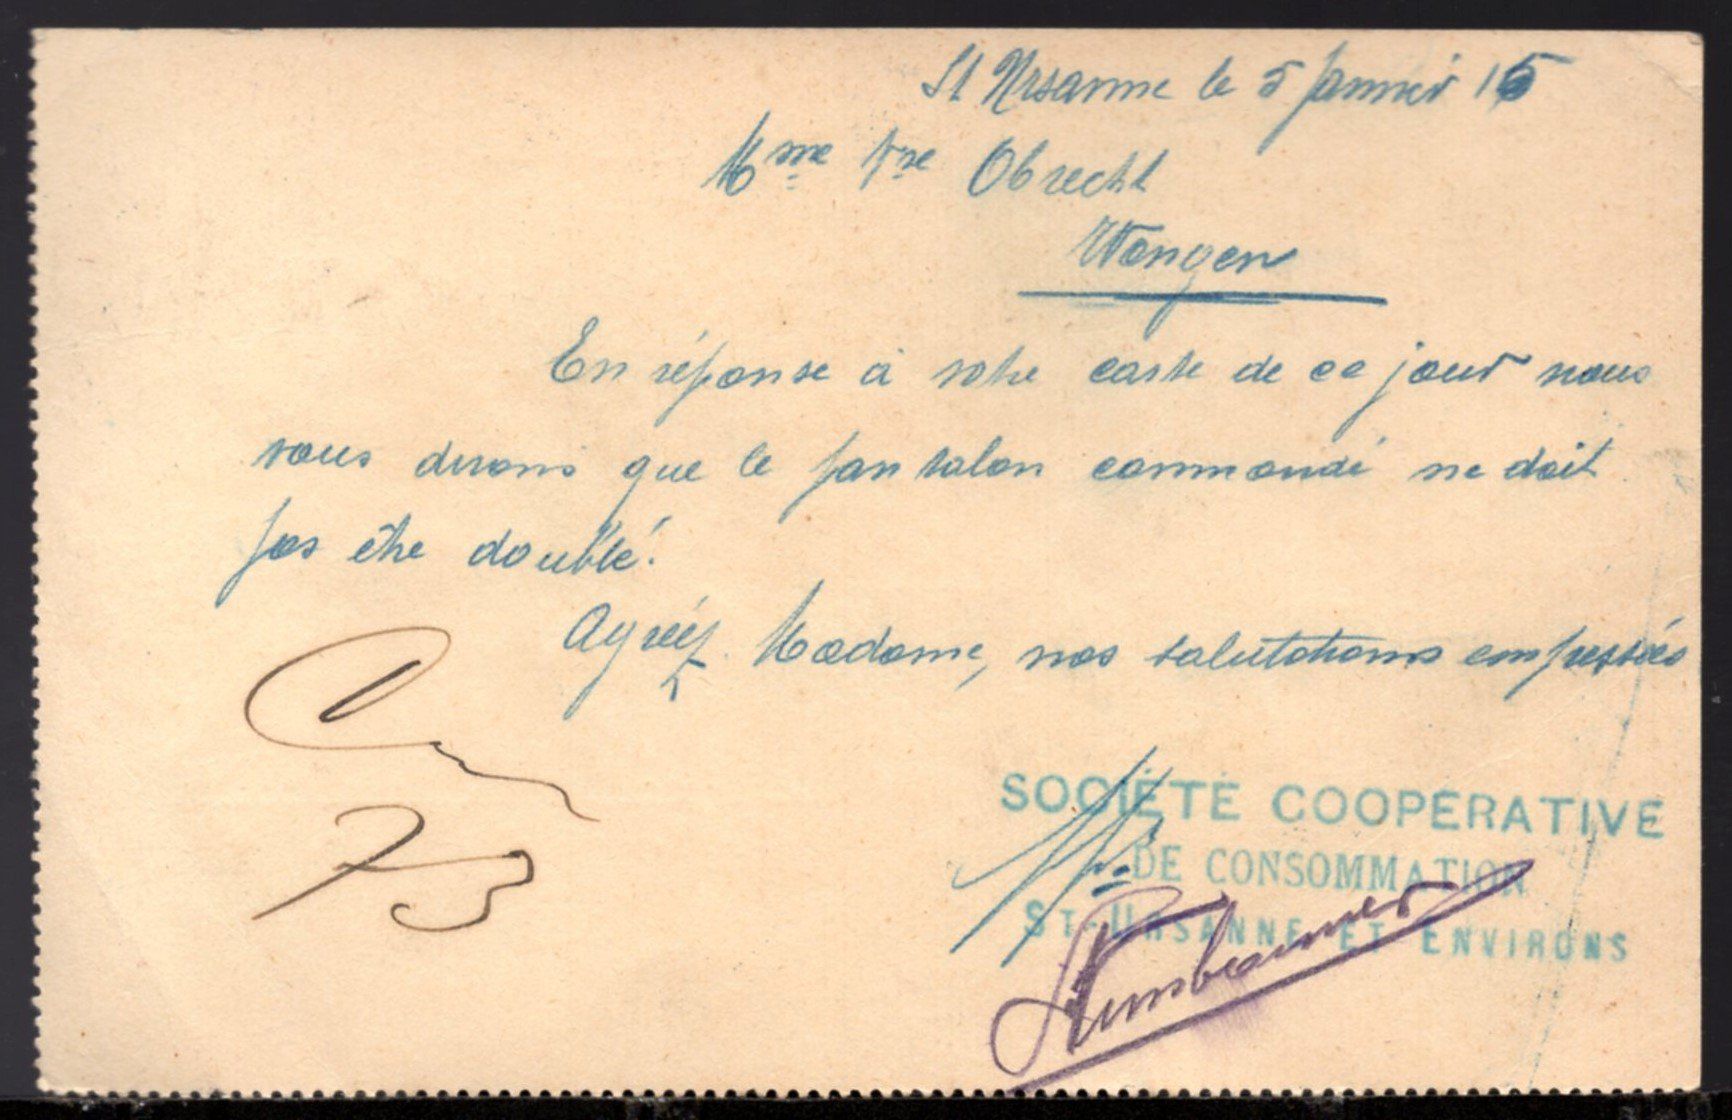 St Ursanne le 5 Janvier 15
Mme Vve Obrecht
Wangen
En réponse à votre carte de ce jour nous
vous dirons que le pantalon commandé ne doit
pas être doublé.
Agréez Madame, nos salutations empressées
SOCIÉTÉ COOPÉRATIVE
DE CONSOMMATION
ST-URSANNE ET ENVIRONS